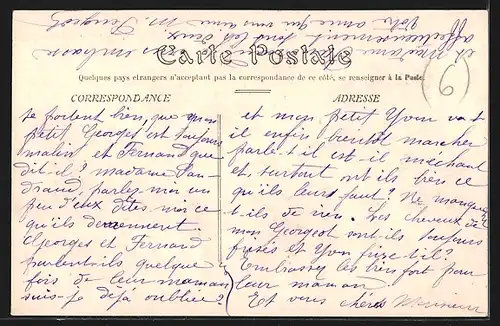 Carte Postale
Quelques pays étrangers n'acceptant pas la correspondance de ce côté, se renseigner à la Poste
CORRESPONDANCE
ADRESSE
6
se portent bien, que mon
petit Georges est toujours
malin et Fernand que
dit-il? madame
parlez moi un
peu d'eux dites moi ce
qu'ils deviennent.
Georges et Fernand
parlent ils quelque
fois de leur maman
suis-je déjà oubliée?
et mon petit Yvon va t
il enfin bientôt marcher
parle t il est il méchant
et surtout ont ils bien ce
qu'ils leurs faut? Ne manquent
t-ils de rien. Les cheveux de
mon Georges sont ils toujours
frisés et Yvon frize t il?
Embrassez les bien fort pour
leur maman
Et vous chères Monsieur
et Madame embrasse
affectueusement tous deux.
Votre amie qui vous aime M.